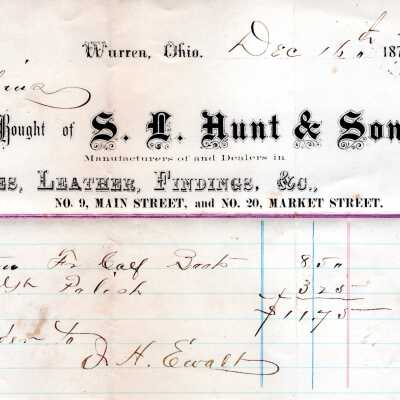 Warren, Ohio. Dec 16th 187
Bought of S. L. Hunt & Son
Manufacturers of and Dealers in
ES, LEATHER, FINDINGS, &C.,
NO. 9, MAIN STREET, and NO. 20, MARKET STREET.
Fr Calf Boots 8 50
Polish 3 25
$11.75
to
J H. Ewalt